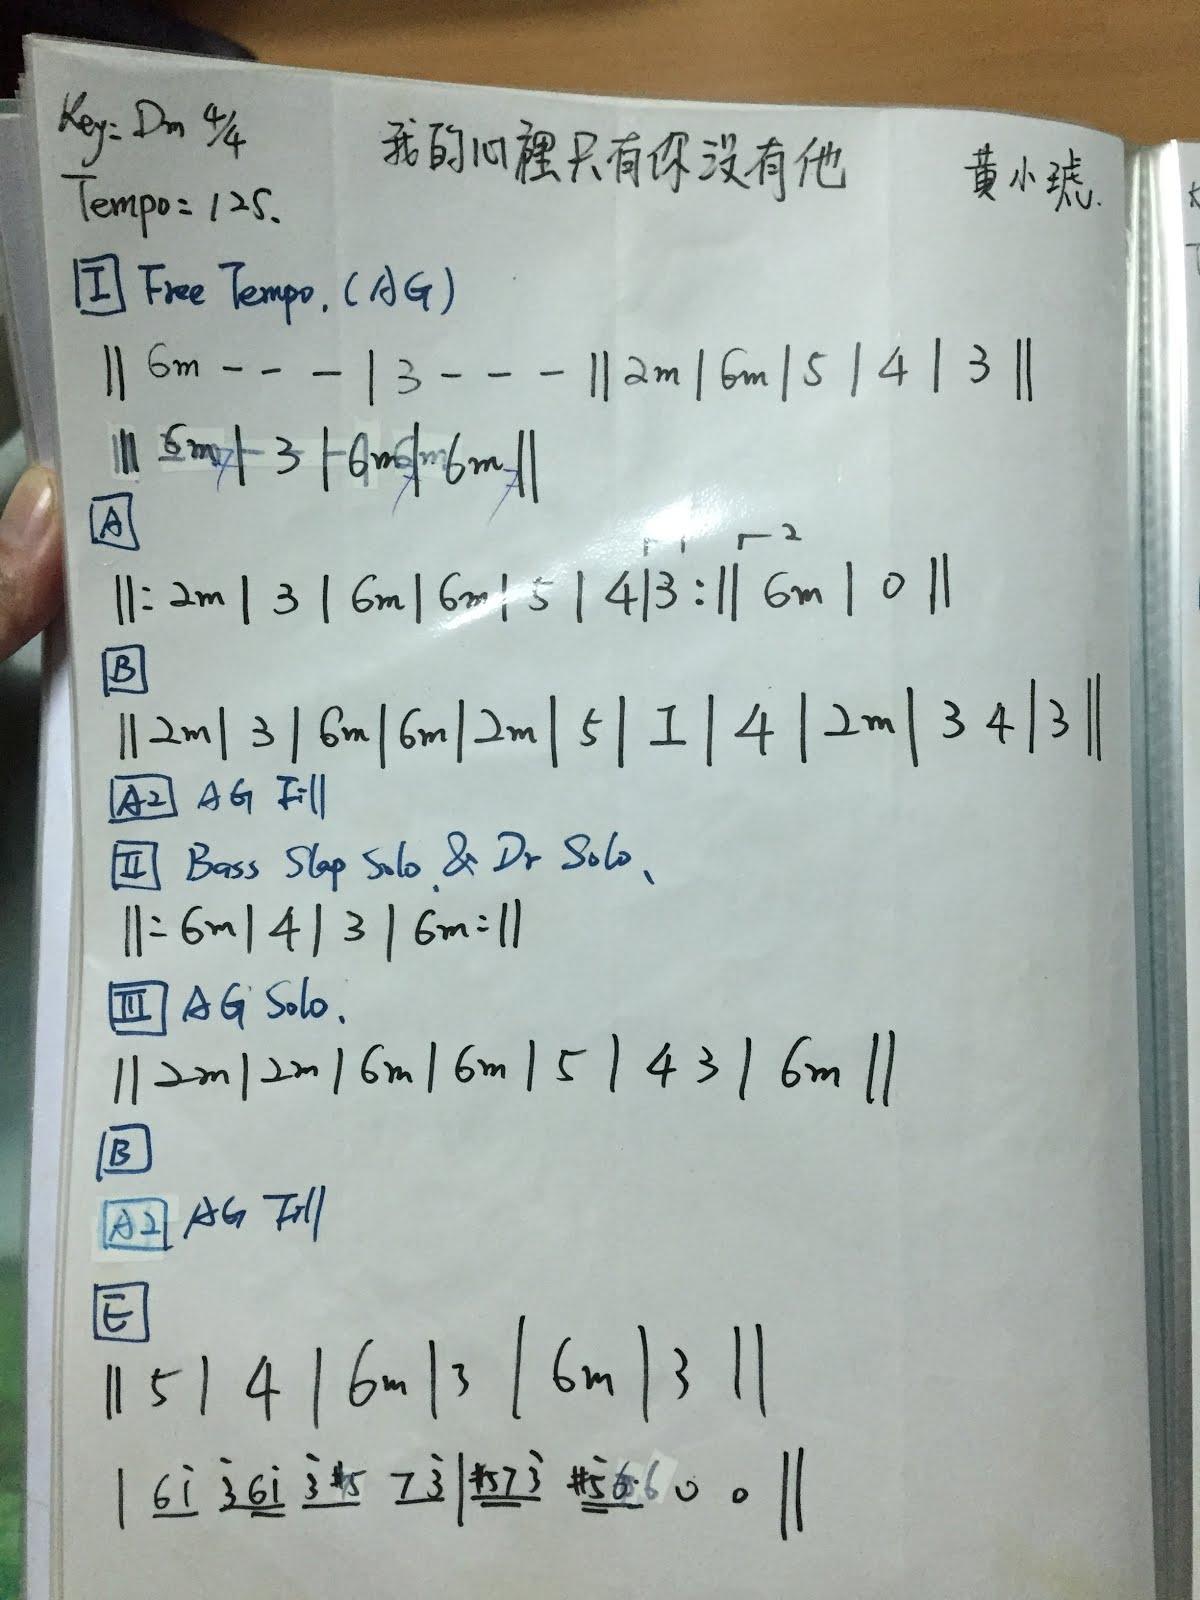 Key= Dm 4/4
我的心裡只有你没有他
黄小琥.
Tempo= 125.
I Free Tempo. (AG)
|| 6m - - - | 3 - - - || 2m | 6m | 5 | 4 | 3 ||
|| 6m | 3 | 6m | 6m ||
A
1 2
||: 2m | 3 | 6m | 6m | 5 | 4 | 3 :|| 6m | 0 ||
B
|| 2m | 3 | 6m | 6m | 2m | 5 | I | 4 | 2m | 3 4 | 3 ||
A2 AG Fill
II Bass Slap Solo. & Dr Solo、
||: 6m | 4 | 3 | 6m :||
III AG Solo.
|| 2m | 2m | 6m | 6m | 5 | 4 3 | 6m ||
B
A2 AG Fill
E
|| 5 | 4 | 6m | 3 | 6m | 3 ||
| 6 i 3 6 i 3 #5 7 3 | #5 7 3 #5 6 0 0 ||